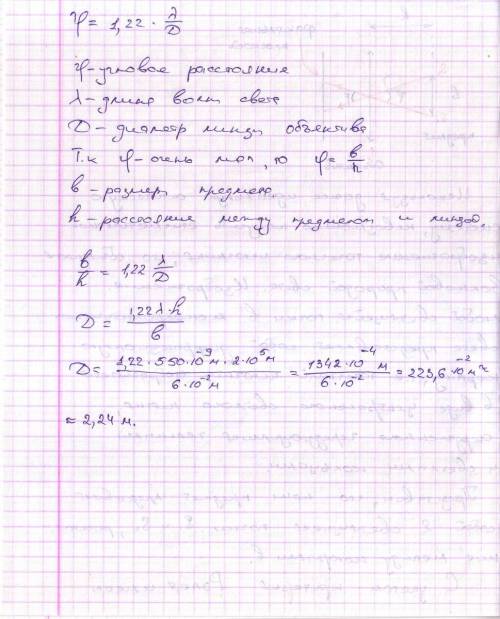 φ = 1,22 · λ/D
φ - угловое расстояние
λ - длина волны света
D - диаметр линзы объектива
Т.к φ - очень мал, то φ = в/h
в - размер предмета
h - расстояние между предметом и линзой.
в/h = 1,22 λ/D
D = 1,22λ·h/в
D = 1,22·550·10⁻⁹м·2·10⁵м/6·10⁻²м = 1342·10⁻⁴ м/6·10⁻² = 223,6·10⁻² м ≈
≈ 2,24 м.